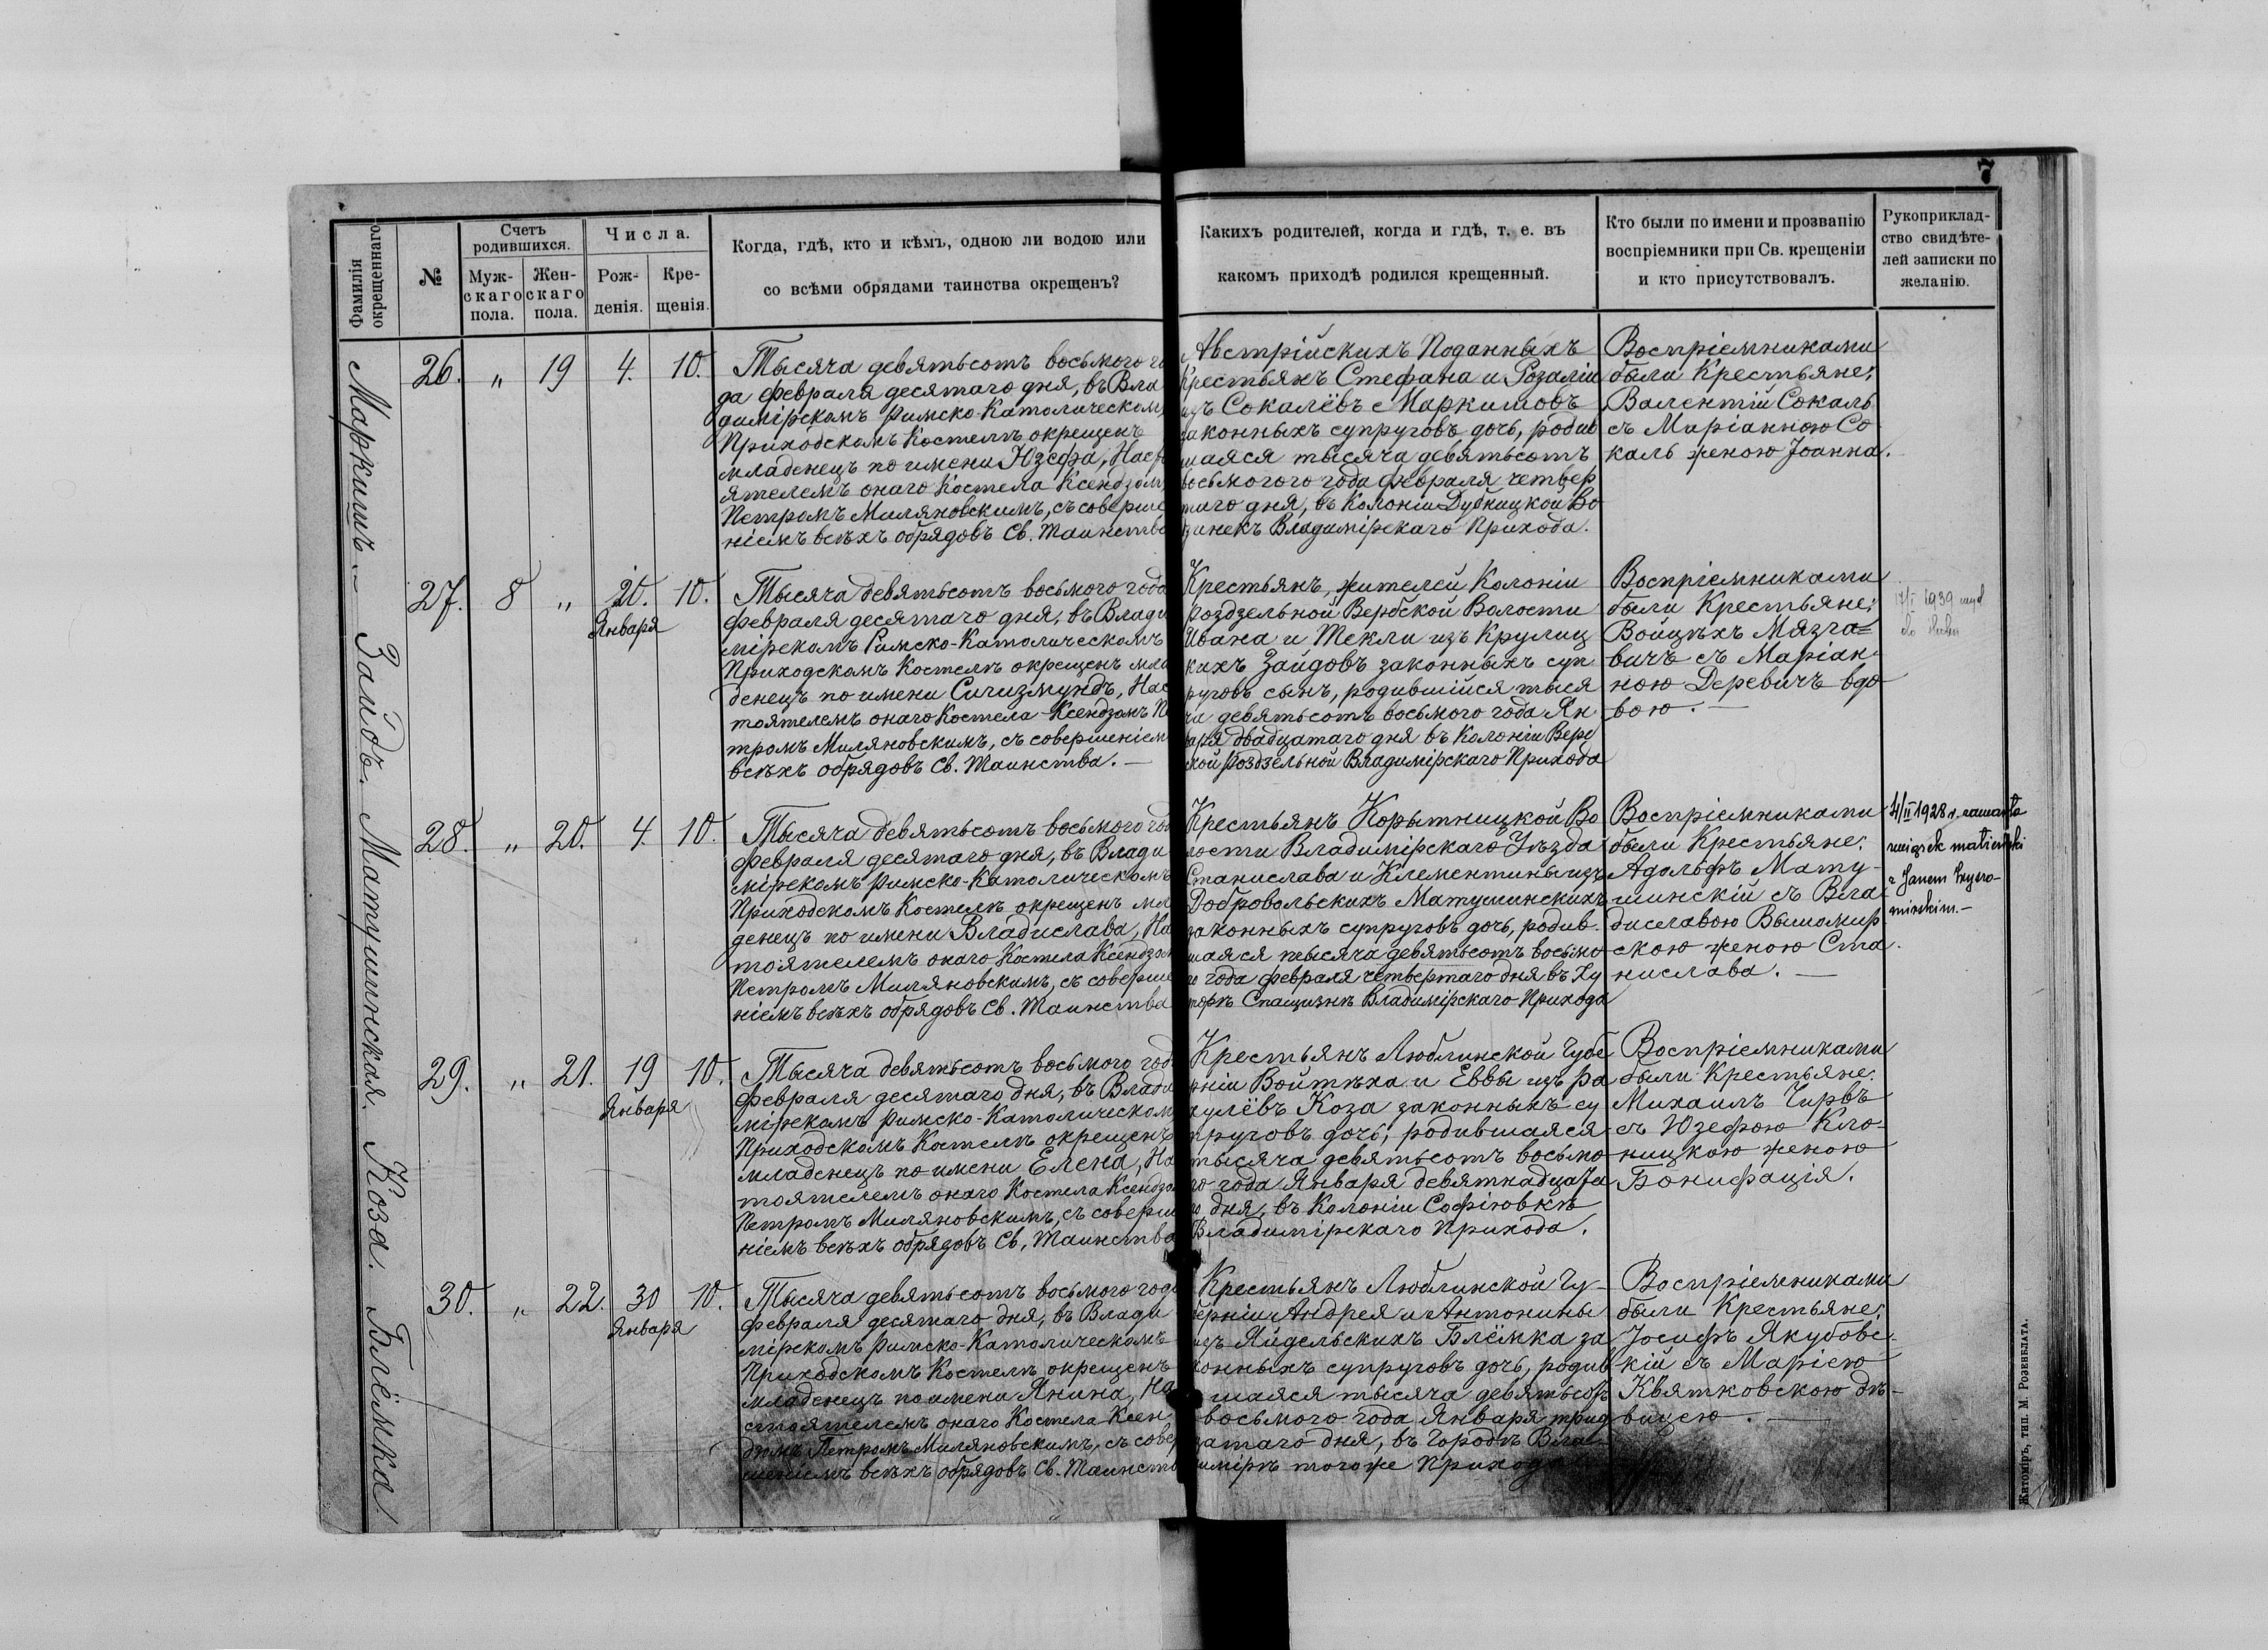 7
Фамилія
окрещеннаго
№
Счетъ
родившихся.
Муж-
скаго
пола.
Жен-
скаго
пола.
Числа.
Рож-
денія.
Кре-
щенія.
Когда, гдѣ, кто и кѣмъ, одною ли водою или
со всѣми обрядами таинства окрещенъ?
Какихъ родителей, когда и гдѣ, т. е. въ
какомъ приходѣ родился крещенный.
Кто были по имени и прозванію
воспріемники при Св. крещеніи
и кто присутствовалъ.
Рукоприклад-
ство свидѣте-
лей записки по
желанію.
Маркишъ.
26. " 19 4. 10.
Тысяча девятьсотъ восьмого го
да февраля десятаго дня, въ Вла
димірскомъ Римско-Католическомъ
Приходскомъ Костелѣ окрещенъ
младенецъ по имени Юзефа, Нас
ятелемъ онаго Костела Ксендзом
Петромъ Миляновскимъ, съ соверше
ніемъ всѣхъ обрядовъ Св. Таинства
Австрійскихъ Поданныхъ
Крестьянъ Стефана и Розаліи
изъ Сокалёвъ Маркишовъ
законныхъ супруговъ дочь, родив
шаяся тысяча девятьсотъ
восьмогого года февраля четвер
таго дня, въ Колоніи Дубницкой Во
Владимірскаго Прихода.
Воспріемниками
были Крестьяне:
Валентій Сокаль
съ Маріанною Со
каль женою Іоанна.
Зайдъ.
27. 8 " 20. 10.
Января
Тысяча девятьсотъ восьмого года
февраля десятаго дня, въ Влади
мірскомъ Римско-Католическомъ
Приходскомъ Костелѣ окрещенъ мла
денецъ по имени Сигизмундъ, Нас
тоятелемъ онаго Костела Ксендзомъ Пе
тромъ Миляновскимъ, съ совершеніем
всѣхъ обрядовъ Св. Таинства.
Крестьянъ, жителей Колоніи
Роздзельной Вербской Волости
Ивана и Текли изъ Крулиц
кихъ Зайдовъ законныхъ суп
руговъ сынъ, родившійся тыся
ча девятьсотъ восьмого года Ян
варя двадцатаго дня въ Колоніи Верб
ской Роздзельной Владимірскаго Прихода
Воспріемниками
были Крестьяне:
Войцѣхъ Мязга=
вичъ съ Маріан
ною Деревичъ вдо
вою.
1939
Матушинская.
28. " 20. 4. 10.
Тысяча девятьсотъ восьмого год
февраля десятаго дня, въ Влади
мірскомъ Римско-Католическомъ
Приходскомъ Костелѣ окрещенъ мла
денецъ по имени Владислава, На
тоятелемъ онаго Костела Ксендзом
Петромъ Миляновскимъ, съ соверше
ніемъ всѣхъ обрядовъ Св. Таинства
Крестьянъ Корытницкой Во
лости Владимірскаго Уѣзда
Станислава и Клементины изъ
Добровольскихъ Матушинскихъ
законныхъ супруговъ дочь, родив.
шаяся тысяча девятьсотъ восьмо
го года февраля четвертаго дня въ Ху
торѣ Спащизнѣ Владимірскаго Прихода
Воспріемниками
были Крестьяне:
Адольфъ Мату-
шинскій съ Вла
диславою Вышомир
скою женою Ста
нислава.
4/II 1928 r. zawarła
związek małżeński
z Janem
Коза.
29. " 21. 19 10.
Января
Тысяча девятьсотъ восьмого год
февраля десятаго дня, въ Влади
мірскомъ Римско-Католическом
Приходскомъ Костелѣ окрещенъ
младенецъ по имени Елена, На
тоятелемъ онаго Костела Ксендзо
Петромъ Миляновскимъ, съ соверше
ніемъ всѣхъ обрядовъ Св. Таинства
Крестьянъ Люблинской Губе
рніи Войтѣха и Еввы изъ Ра
кулёвъ Коза законныхъ су
пруговъ дочь, родившаяся
тысяча девятьсотъ восьмо
го года Января девятнадцата
го дня, въ Колоніи Софіювкѣ
Владимірскаго Прихода.
Воспріемниками
были Крестьяне:
Михаилъ Гирвъ
съ Юзефою Кло-
ницкою женою
Бонифація.
Блёмка.
30. " 22. 30 10.
Января
Тысяча девятьсотъ восьмого года
февраля десятаго дня, въ Влади
мірскомъ Римско-Католическомъ
Приходскомъ Костелѣ окрещенъ
младенецъ по имени Янина, На
стоятелемъ онаго Костела Ксен,
дзомъ Петромъ Миляновскимъ, съ совер
шеніемъ всѣхъ обрядовъ Св. Таинств
Крестьянъ Люблинской Гу-
берніи Андрея и Антонины
изъ Яйдельскихъ Блёмка за
конныхъ супруговъ дочь, родив
шаяся тысяча девятьсотъ
восьмого года Января трид
цатаго дня, въ Городѣ Вла-
димірѣ тогоже Прихода
Воспріемниками
были Крестьяне:
Іосифъ Якубовс-
кій съ Маріею
Квятковскою дѣ-
вицею.
Житоміръ, тип. М. Розенблата.